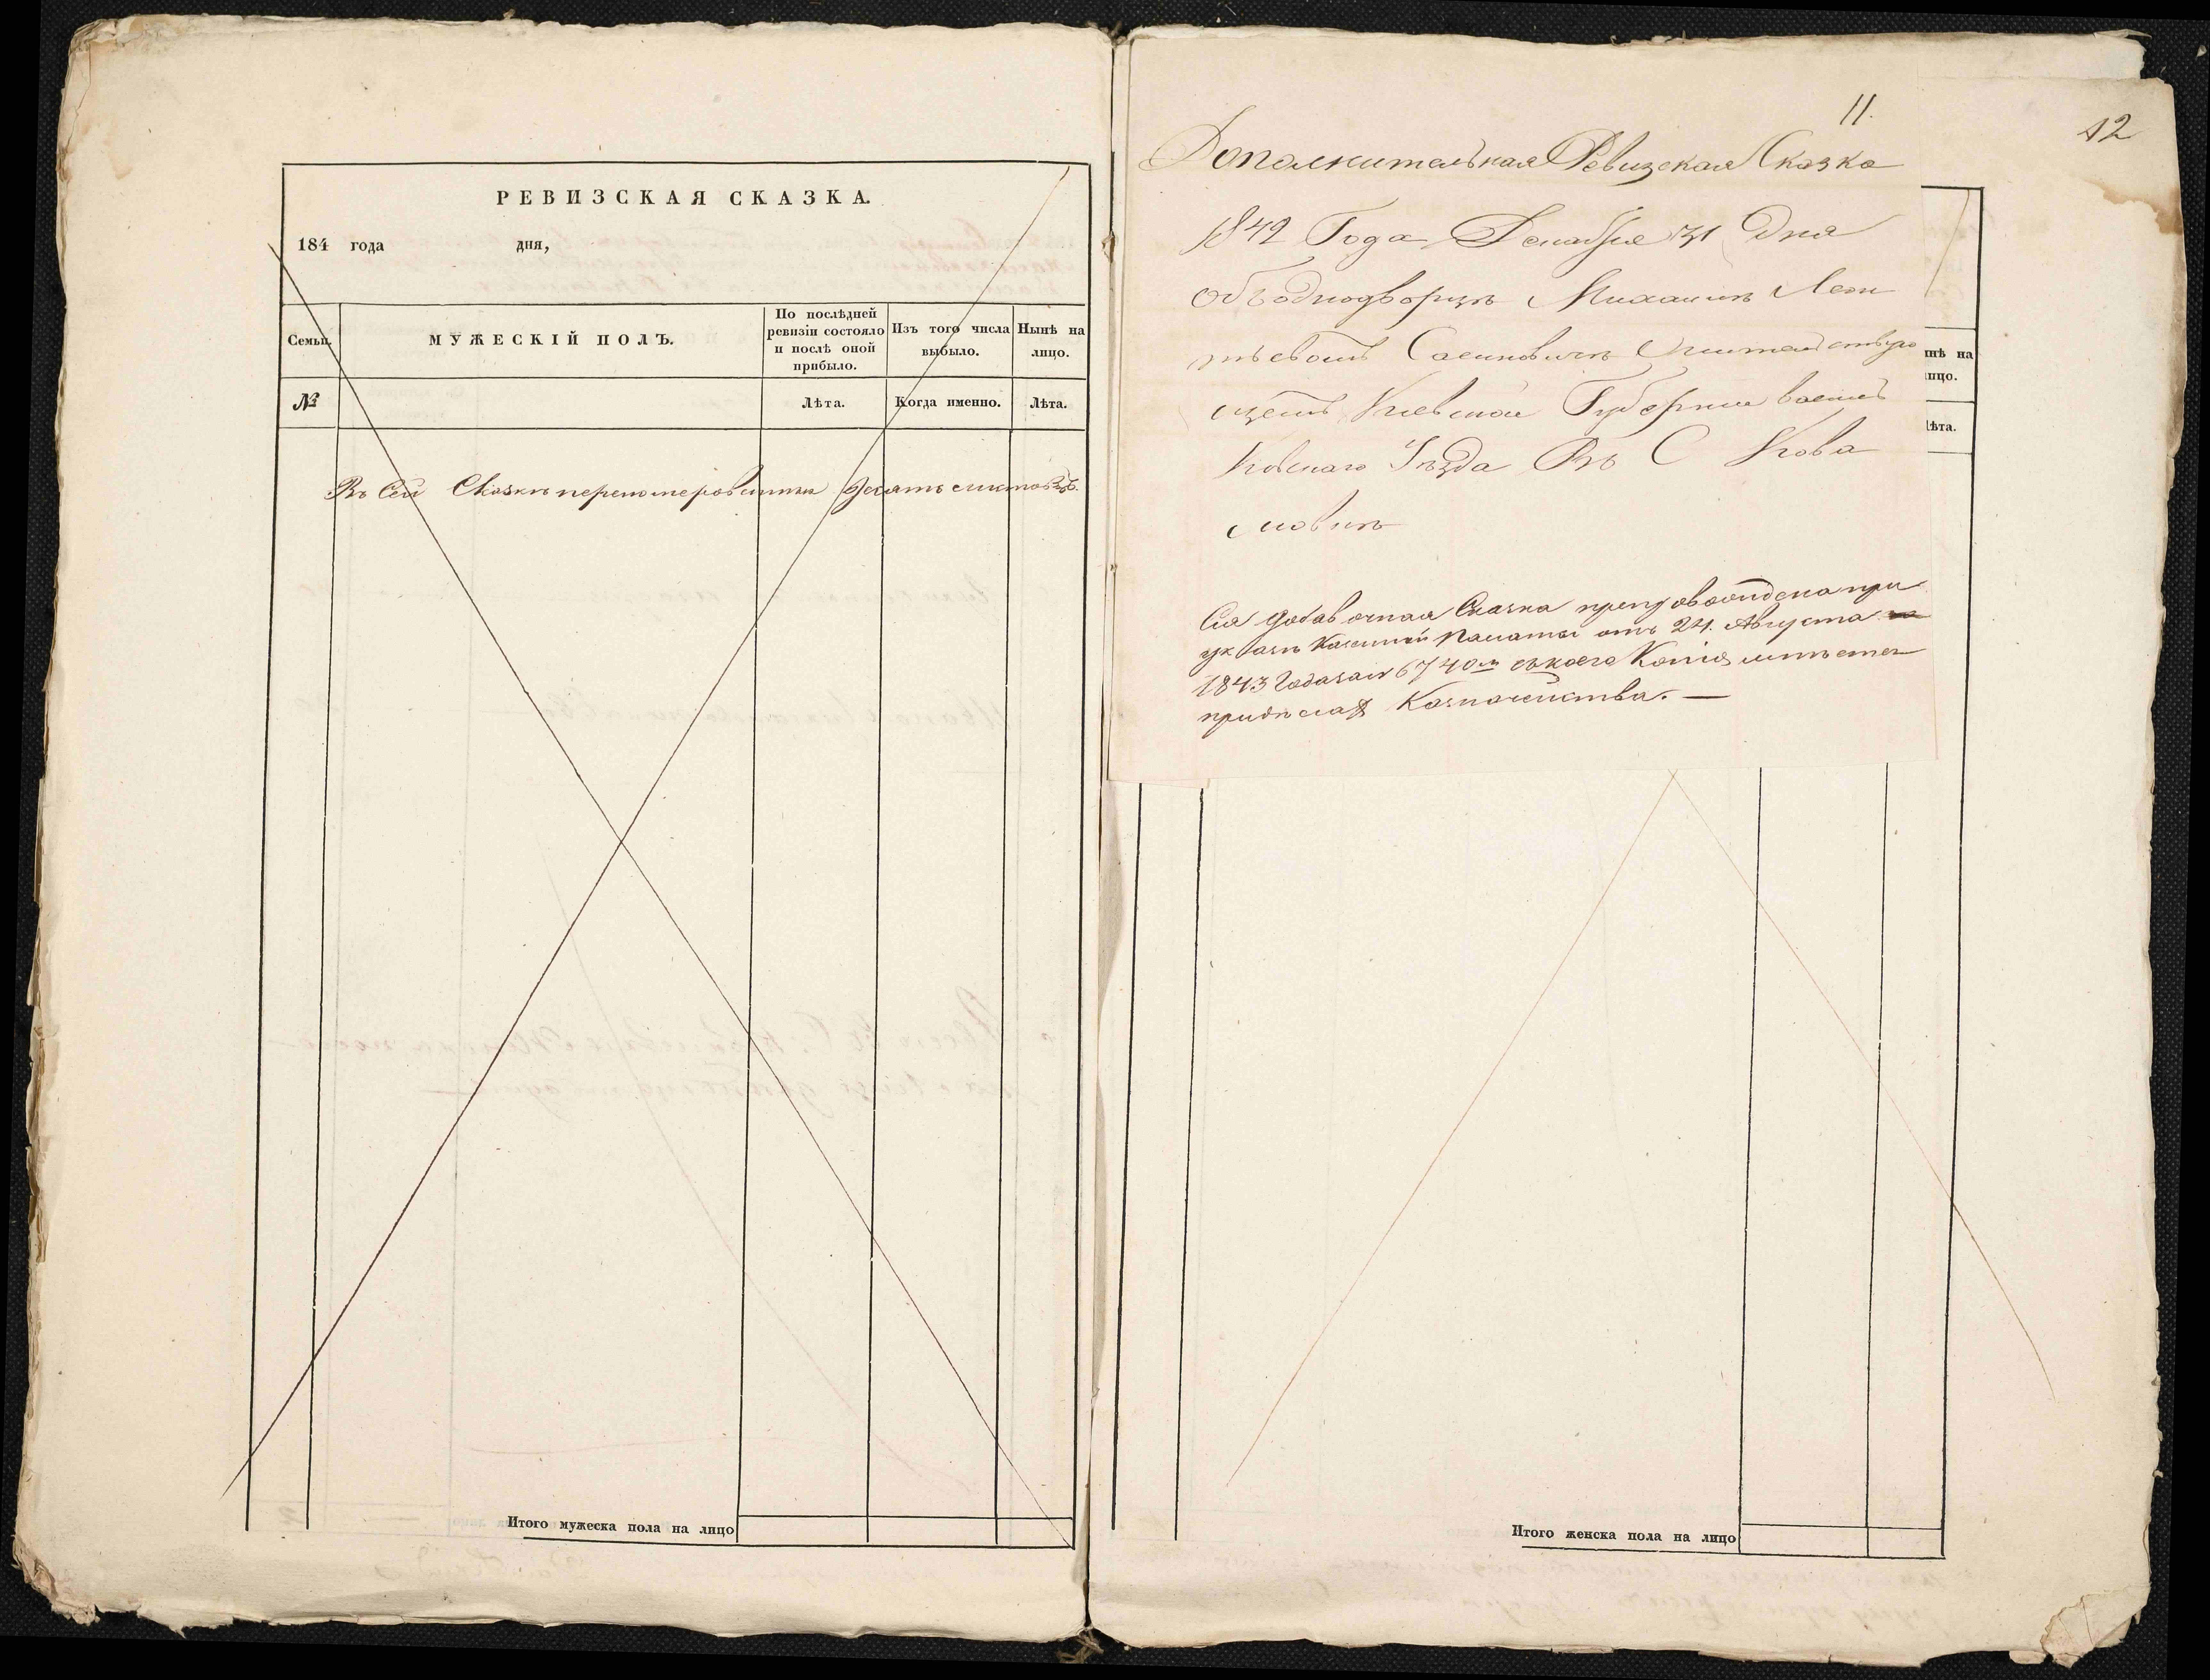 РЕВИЗСКАЯ СКАЗКА.
184 года дня,
Семьи.
МУЖЕСКІЙ ПОЛЪ.
По послѣдней
ревизіи состояло
и послѣ оной
прибыло.
Изъ того числа
выбыло.
Нынѣ на
лицо.
№
Лѣта.
Когда именно.
Лѣта.
Въ Сей Сказкѣ перенумерованных десять листовъ.
Итого мужеска пола на лицо
11.
12
Дополнительная Ревизская Сказка
1842 Года Декабря 31 Дня
Объ однодворцѣ Михаилѣ
Жительствую
щемъ Кіевской Губерніи Василь
ковскаго Уѣзда Въ С Кова
левкѣ
Сія добавочная Сказка препровождена при
указѣ Казенной Палаты отъ 24. Августа
1843 Года за № 6740мъ съ коего Копія имѣется
при дѣлах Казначейства. —
нѣ на
ицо.
ѣта.
Итого женска пола на лицо